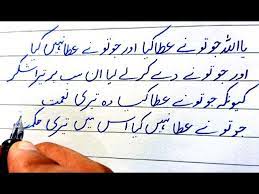 یا اللہ جو تو نے عطا کیا اور جو تو نے عطا نہیں کیا
اور جو تو نے دے کر لے لیا ان سب پر تیرا شکر
کیونکہ جو تو نے عطا کیا وہ تیری نعمت
جو تو نے عطا نہیں کیا اس میں تیری